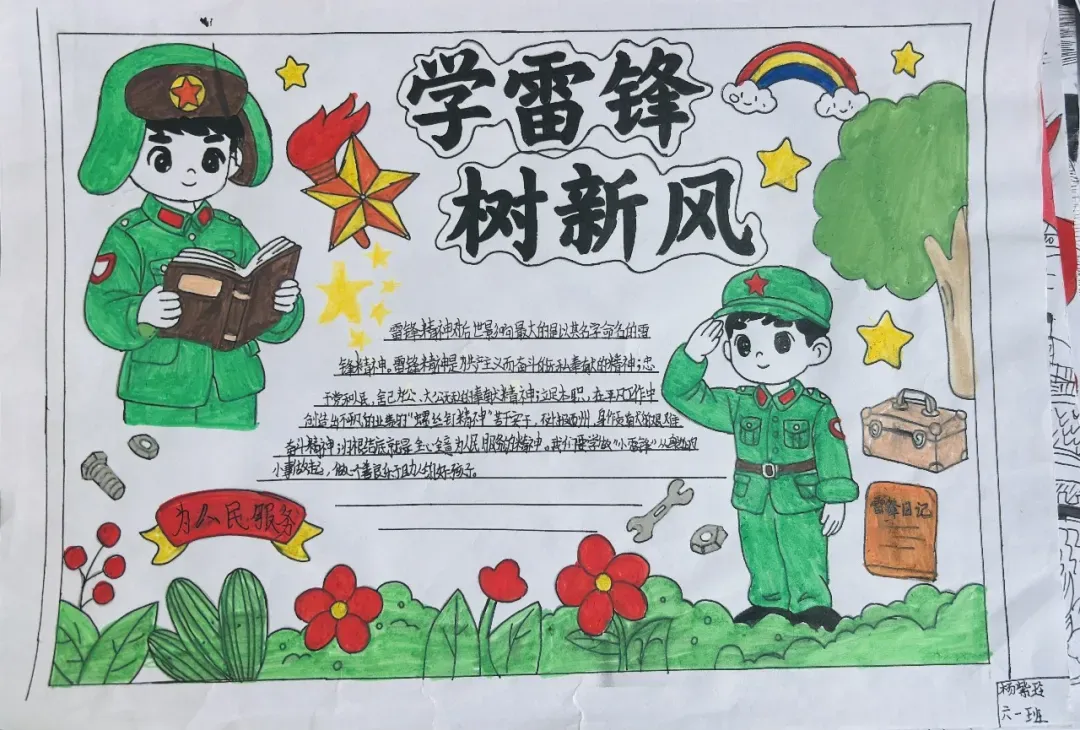 学雷锋
树新风
雷锋精神对后世影响最大的是以其名字命名的雷
锋精神。雷锋精神是共产主义而奋斗的无私奉献的精神；忠
于党和人民，舍己为公、大公无私的奉献精神；立足本职、在平凡工作中
创造出不平凡的业绩的"螺丝钉精神"苦实干，不计报酬，争做贡献艰难
奋斗精神，归根结底就是全心全意为人民服务的精神。我们要学做"小雷锋"从身边的
小事做起，做一个善良乐于助人的好孩子。
为人民服务
雷锋日记
杨紫
六一班